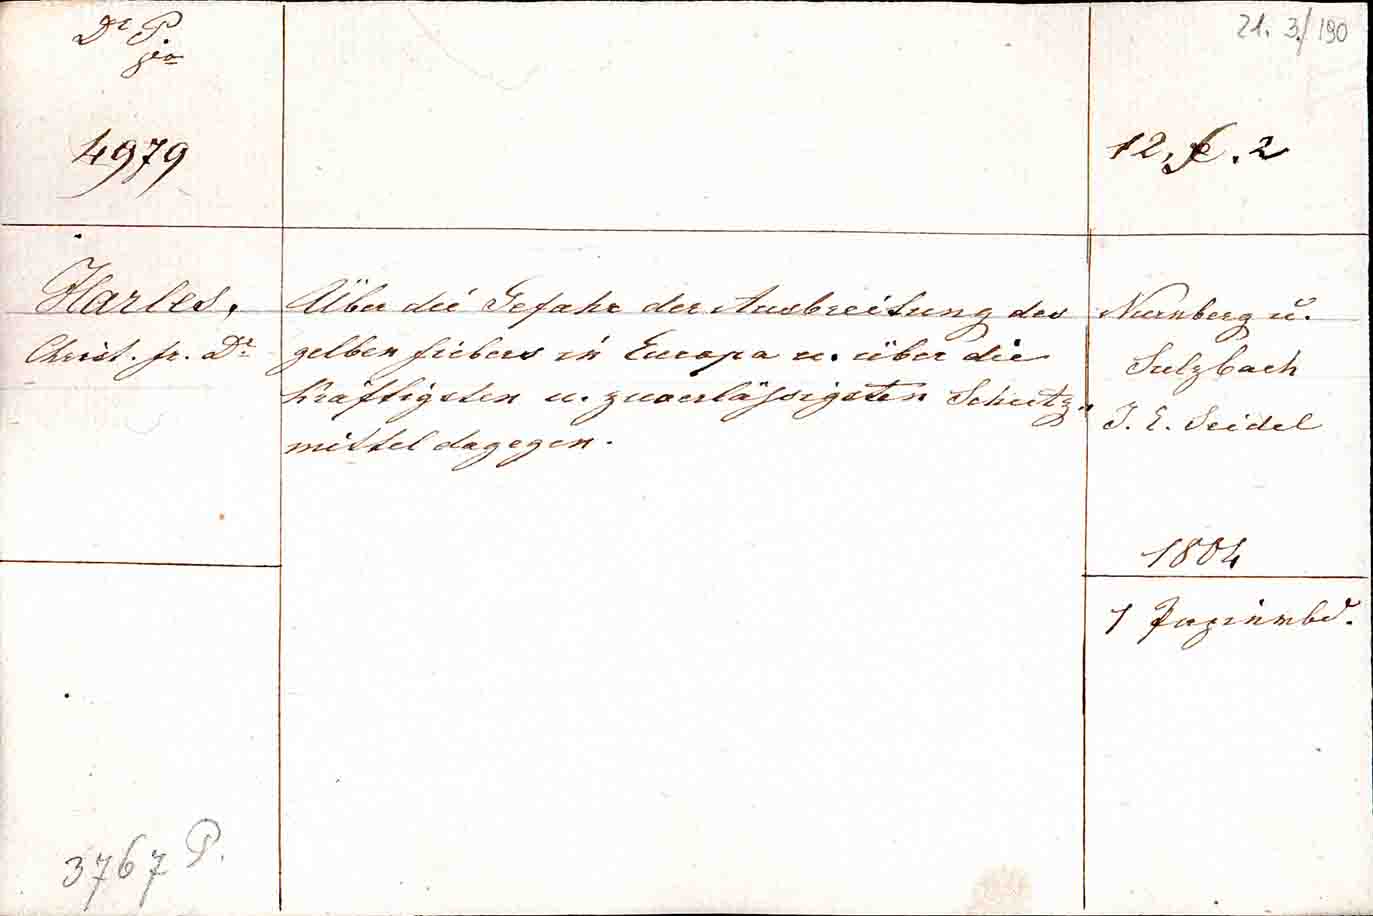 Dr P.
jra
4979
21. 3./190
12, f. 2
Harles,
Christ. fr. Dr
Über die Gefahr der Ausbreitung des
gelben fiebers in Europa u. über die
kräftigsten u. zuverläßsigsten Schutz„
mittel dagegen.
Nürnberg u.
Sulzbach
J. E. Seidel
1804
1 Papierbd.
3767 P.